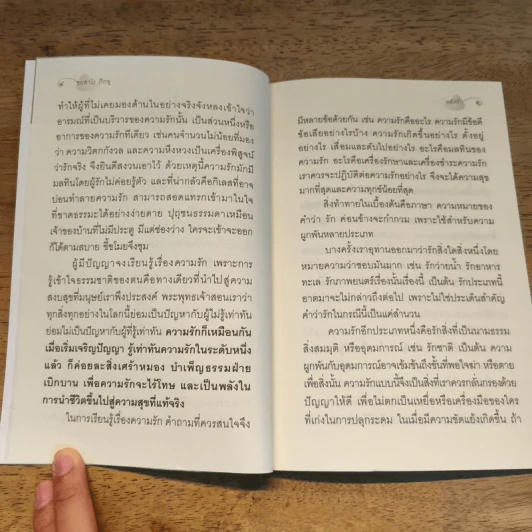 ชยสาโร ภิกขุ
ทำให้ผู้ที่ไม่เคยมองด้านในอย่างจริงจังหลงเข้าใจว่า
อารมณ์ที่เป็นบริวารของความรักนั้น เป็นส่วนหนึ่งหรือ
อาการของความรักทีเดียว เช่นคนจำนวนไม่น้อยที่มอง
ว่า ความวิตกกังวล และความหึงหวงเป็นเครื่องพิสูจน์
ว่ารักจริง จึงยินดีสงวนเอาไว้ ด้วยเหตุนี้ความรักมักมี
มลทินโดยผู้รักไม่ค่อยรู้ตัว และที่น่ากลัวคือกิเลสที่อาจ
บ่อนทำลายความรัก สามารถสอดแทรกเข้ามาในใจ
ที่ขาดธรรมะได้อย่างง่ายดาย ปุถุชนธรรมดาเหมือน
เจ้าของบ้านที่ไม่มีประตู มีแต่ช่องว่าง ใครจะเข้าจะออก
ก็ได้ตามสบาย ขี้ขโมยจึงชุม
ผู้มีปัญญาจงเรียนรู้เรื่องความรัก เพราะการ
รู้เข้าใจธรรมชาติของตนคือทางเดียวที่นำไปสู่ความ
สงบสุขที่มนุษย์เราพึงประสงค์ พระพุทธเจ้าสอนเราว่า
ทุกสิ่งทุกอย่างในโลกนี้ย่อมเป็นปัญหากับผู้ไม่รู้เท่าทัน
ย่อมไม่เป็นปัญหากับผู้ที่รู้เท่าทัน ความรักก็เหมือนกัน
เมื่อเริ่มเจริญปัญญา รู้เท่าทันความรักในระดับหนึ่ง
แล้ว ก็ค่อยละสิ่งเศร้าหมอง บำเพ็ญธรรมฝ่าย
เบิกบาน เพื่อความรักจะไร้โทษ และเป็นพลังใน
การนำชีวิตขึ้นไปสู่ความสุขที่แท้จริง
ในการเรียนรู้เรื่องความรัก คำถามที่ควรสนใจจึง
มีหลายข้อด้วยกัน เช่น ความรักคืออะไร ความรักมีข้อดี
ข้อเสียอย่างไรบ้าง ความรักเกิดขึ้นอย่างไร ตั้งอยู่
อย่างไร เสื่อมและดับไปอย่างไร อะไรคือมลทินของ
ความรัก อะไรคือเครื่องรักษาและเครื่องชำระความรัก
เราควรจะปฏิบัติต่อความรักอย่างไร จึงจะได้ความสุข
มากที่สุดและความทุกข์น้อยที่สุด
สิ่งท้าทายในเบื้องต้นคือภาษา ความหมายของ
คำว่า รัก ค่อนข้างจะกำกวม เพราะใช้สำหรับความ
ผูกพันหลายประเภท
บางครั้งเราอุทานออกมาว่ารักสิ่งใดสิ่งหนึ่งโดย
หมายความว่าชอบมันมาก เช่น รักว่ายน้ำ รักอาหาร
ทะเล รักภาพยนตร์เรื่องนั้นเรื่องนี้ เป็นต้น รักประเภทนี้
อาตมาจะไม่กล่าวถึงต่อไป เพราะไม่ใช่ประเด็นสำคัญ
คำว่ารักในกรณีนี้เป็นแค่สำนวน
ความรักอีกประเภทหนึ่งคือรักสิ่งที่เป็นนามธรรม
สิ่งสมมุติ หรืออุดมการณ์ เช่น รักชาติ เป็นต้น ความ
ผูกพันกับอุดมการณ์อาจเข้มข้นถึงขั้นที่พอใจฆ่า หรือตาย
เพื่อสิ่งนั้น ความรักแบบนี้จึงเป็นสิ่งที่เราควรกลั่นกรองด้วย
ปัญญาให้ดี เพื่อไม่ตกเป็นเหยื่อหรือเครื่องมือของใคร
ที่เก่งในการปลุกระดม ในเมื่อมีความขัดแย้งเกิดขึ้น ถ้า